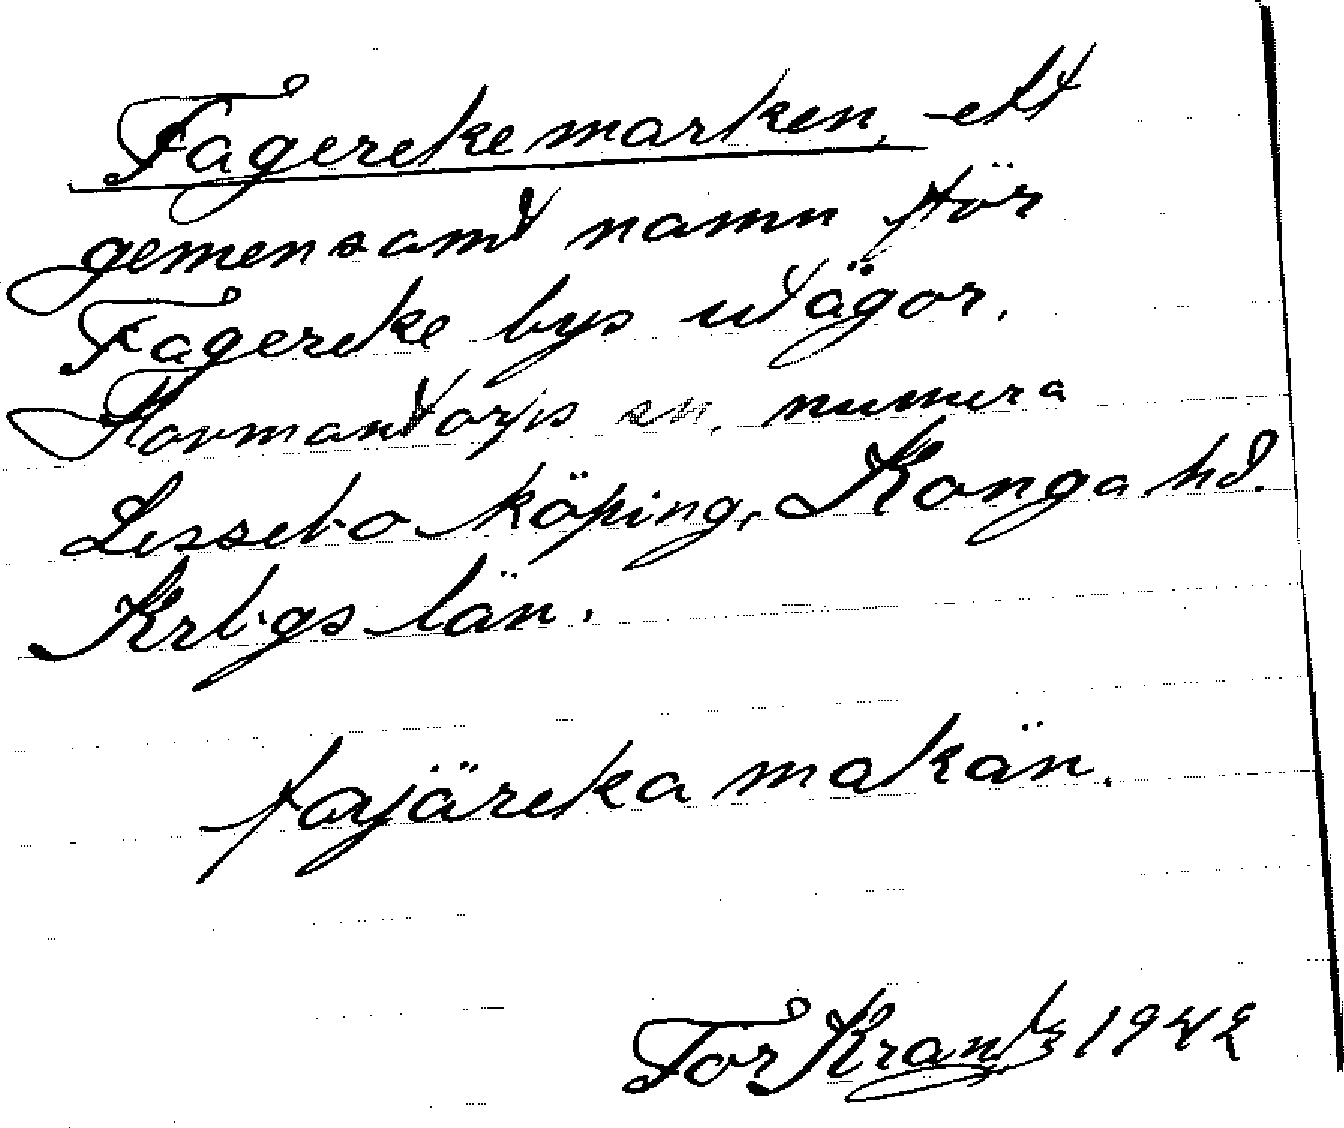 Fagerekemarken, ett
gemensamt namn för
Fagereke bys utägor.
Hovmantorps sn, numera
Lessebo köping, Konga hd.
Krbgs län.
fajäreka makän.
Tor Krantz 1942